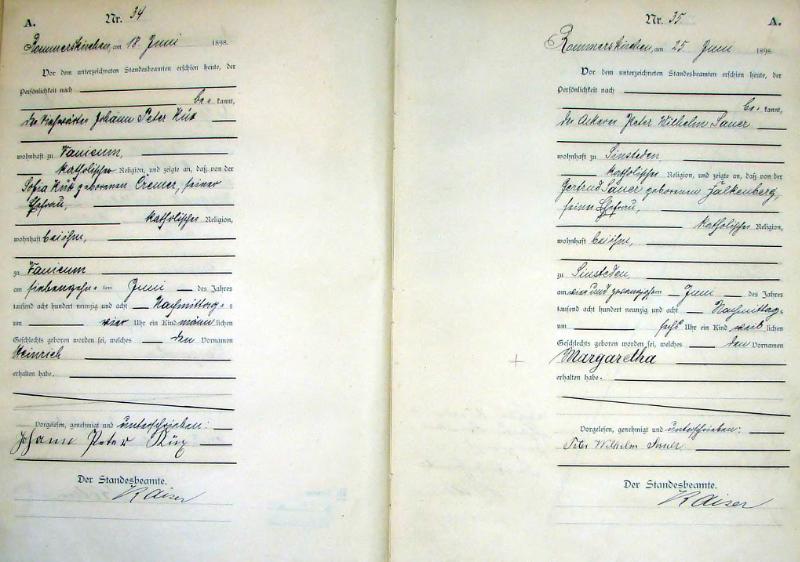 A.
Nr. 34
Rommerskirchen, am 18. Juni 1898.
Vor dem unterzeichneten Standesbeamten erschien heute, der
Persönlichkeit nach
be- kannt,
der Johann Peter Küx
wohnhaft zu Vanicum,
katholischer Religion, und zeigte an, daß von der
Sofia Küx geborenen Cremer, seiner
Ehefrau,
katholischer Religion,
wohnhaft bei ihm,
zu Vanicum
am siebenzehnten Juni des Jahres
tausend acht hundert neunzig und acht Nachmittags
um vier Uhr ein Kind männlichen
Geschlechts geboren worden sei, welches den Vornamen
Heinrich
erhalten habe.
Vorgelesen, genehmigt und unterschrieben:
Johann Peter Küx
Der Standesbeamte.
Kaiser
Nr. 35
A.
Rommerskirchen, am 25. Juni 1898.
Vor dem unterzeichneten Standesbeamten erschien heute, der
Persönlichkeit nach
be- kannt,
der Ackerer Peter Wilhelm Sauer
wohnhaft zu Sinsteden
katholischer Religion, und zeigte an, daß von der
Gertrud Sauer geborenen Falkenberg,
seiner Ehefrau,
katholischer Religion,
wohnhaft bei ihm,
zu Sinsteden,
am vier und zwanzigsten Juni des Jahres
tausend acht hundert neunzig und acht Nachmittags
um Uhr ein Kind weiblichen
Geschlechts geboren worden sei, welches den Vornamen
Margaretha
erhalten habe.
Vorgelesen, genehmigt und unterschrieben:
Peter Wilhelm Sauer
Der Standesbeamte.
Kaiser